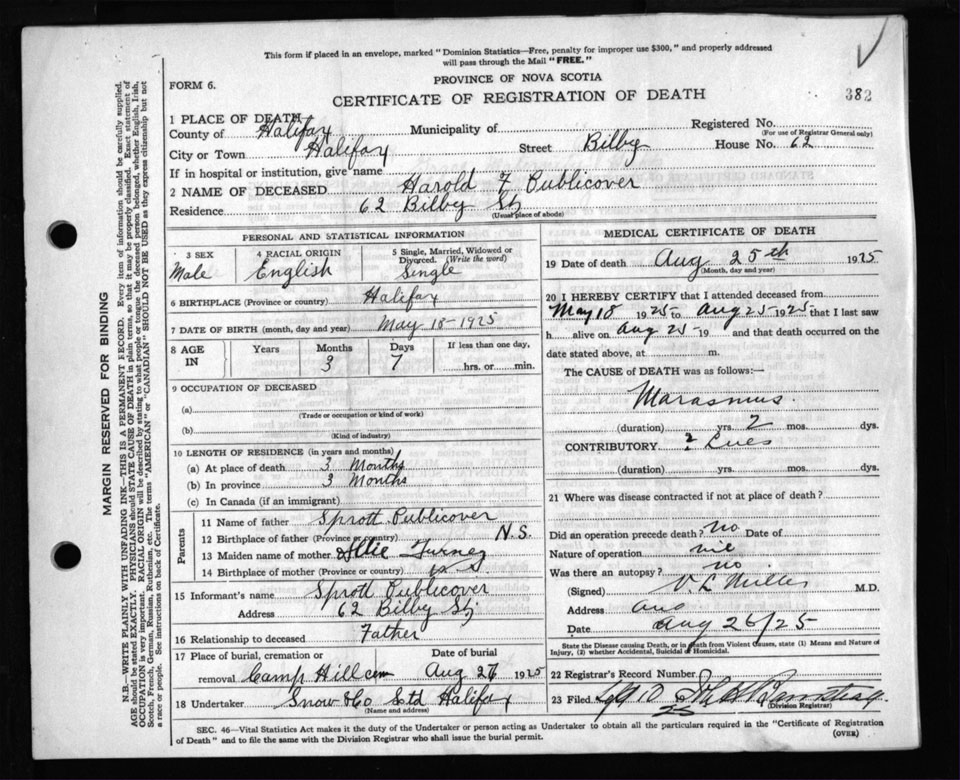 This form if placed in an envelope, marked "Dominion Statistics—Free, penalty for improper use $300," and properly addressed
will pass through the Mail "FREE."
PROVINCE OF NOVA SCOTIA
FORM 6.
CERTIFICATE OF REGISTRATION OF DEATH
382
1 PLACE OF DEATH
County of Halifax Municipality of Registered No.
(For use of Registrar General only)
City or Town Halifax Street Bilby House No. 62
If in hospital or institution, give name
2 NAME OF DECEASED Harold F Publicover
Residence 62 Bilby St
(Usual place of abode)
PERSONAL AND STATISTICAL INFORMATION
3 SEX Male
4 RACIAL ORIGIN English
5 Single, Married, Widowed or Divorced. (Write the word) Single
6 BIRTHPLACE (Province or country) Halifax
7 DATE OF BIRTH (month, day and year) May 18-1925
8 AGE IN Years Months 3 Days 7 If less than one day, hrs. or min.
9 OCCUPATION OF DECEASED
(a)
(Trade or occupation or kind of work)
(b)
(Kind of industry)
10 LENGTH OF RESIDENCE (in years and months)
(a) At place of death 3 Months
(b) In province 3 Months
(c) In Canada (if an immigrant)
Parents
11 Name of father Sprott Publicover
12 Birthplace of father (Province or country) N.S.
13 Maiden name of mother
14 Birthplace of mother (Province or country) N S
15 Informant's name Sprott Publicover
Address 62 Bilby St
16 Relationship to deceased Father
17 Place of burial, cremation or removal Camp Hill cem Date of burial Aug 26 1925
18 Undertaker Snow & Co Ltd Halifax
(Name and address)
MEDICAL CERTIFICATE OF DEATH
19 Date of death Aug 25th 1925
(Month, day and year)
20 I HEREBY CERTIFY that I attended deceased from
May 18 1925 to Aug 25-1925 that I last saw
h alive on Aug 25-19 and that death occurred on
date stated above, at m.
The CAUSE of DEATH was as follows:—
Marasmus.
(duration) yrs. 2 mos. dys.
CONTRIBUTORY ? Lues
(duration) yrs. mos. dys.
21 Where was disease contracted if not at place of death?
Did an operation precede death? no Date of
Nature of operation nil
Was there an autopsy? no
(Signed) V. L Miller M.D.
Address
Date Aug 26/25
State the Disease causing Death, or in death from Violent Causes, state (1) Means and Nature of
Injury, (2) whether Accidental, Suicidal or Homicidal.
22 Registrar's Record Number
23 Filed
(Division Registrar)
SEC. 46—Vital Statistics Act makes it the duty of the Undertaker or person acting as Undertaker to obtain all the particulars required in the "Certificate of Registration
of Death" and to file the same with the Division Registrar who shall issue the burial permit.
(OVER)
MARGIN RESERVED FOR BINDING
N.B.—WRITE PLAINLY WITH UNFADING INK—THIS IS A PERMANENT RECORD. Every item of information should be carefully supplied.
AGE should be stated EXACTLY. PHYSICIANS should STATE CAUSE OF DEATH in plain terms, so that it may be properly classified. Exact statement of
OCCUPATION is very important. RACIAL ORIGIN will be described by stating to what people or tongue the deceased person belonged, whether English, Irish,
Scotch, French, German, Russian, Ruthenian, etc. The terms "AMERICAN" or "CANADIAN" SHOULD NOT BE USED as they express citizenship but not
a race or people. See instructions on back of Certificate.